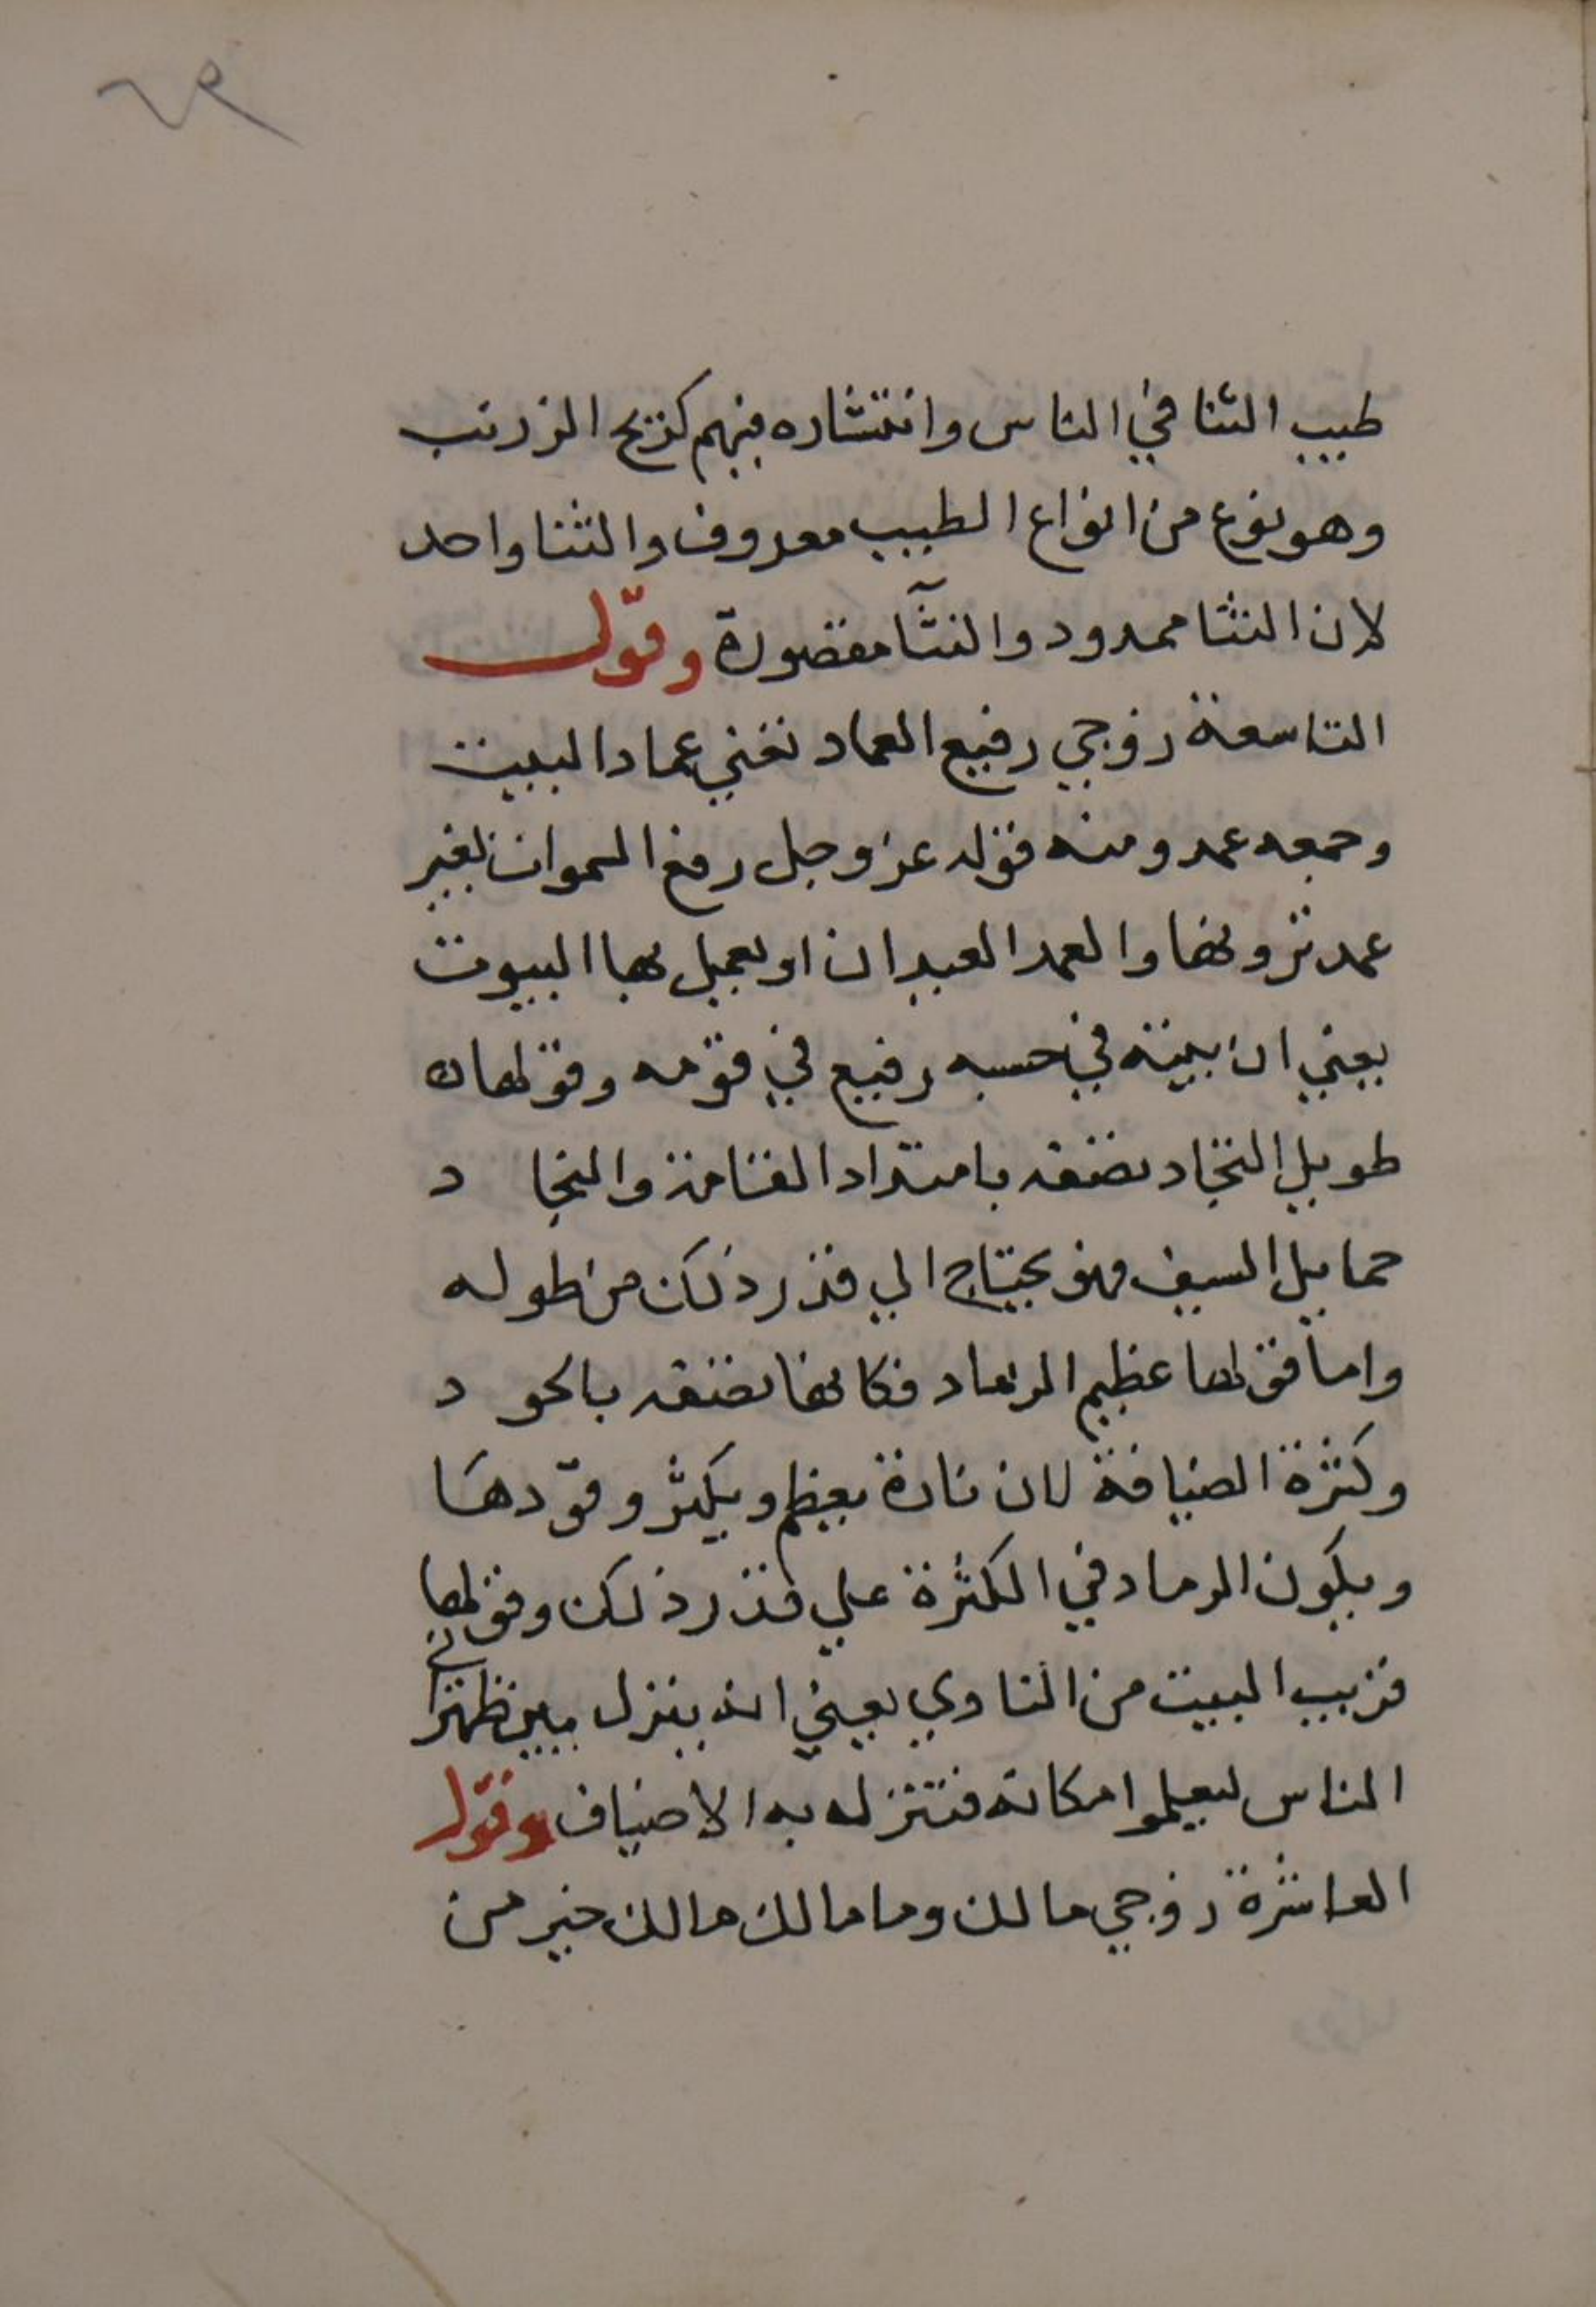 ٦٩
طيب الثنا في الناس وانتشاره فيهم كريح الزرنب
وهو نوع من انواع الطيب معروف والنثنا واحد
لان الثنا ممدود والنثآ مقصورة وقول
التاسعة زوجي رفيع العماد تعني عماد البيت
وجمعه عمد ومنه قوله عز وجل رفع السموات بغير
عمد ترونها والعمد العيدان او يعمل بها البيوت
يعني ان بيته في حسبه رفيع في قومه وقولها
طويل النجاد تصفه بامتداد القامة والنجا د
حمايل السيف فهو يحتاج الي قدر ذلك من طوله
واما قولها عظيم الرماد فكانها تصفه بالجو د
وكثرة الضيافة لان ناره يعظم ويكثر وقودها
ويكون الرماد في الكثرة علي قدر ذلك وقولها
قريب البيت من النادي يعني انه ينزل بين ظهراني
الناس ليعلموا مكانه فتنزله به الاضياف وقول
العاشرة زوجي مالك وما مالك مالك خير من